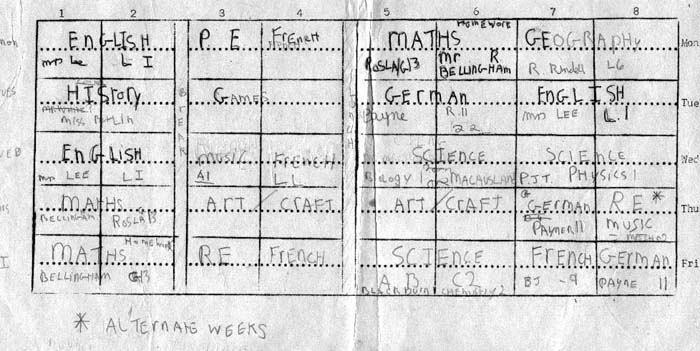 1 2 3 4 5 6 7 8
HOMEWORK
Mon ENGLISH P E FRENCH MATHS GEOGRAPHY Mon
Mrs Lee L I ROSLA G13 Mr R BELLINGHAM R. Rundell L6
HISTORY GAMES GERMAN ENGLISH Tue
Miss Payne R.11 Mrs LEE L.1
22
BREAK LUNCH
ENGLISH MUSIC FRENCH SCIENCE SCIENCE Wed
Mrs LEE L I 41 LL Biology 1 MACAUSLAN P.J.T. PHYSICS 1
MATHS ART / CRAFT ART / CRAFT GERMAN RE * Thu
BELLINGHAM ROSLA PAYNE 11 MUSIC
HOMEWORK
MATHS RE FRENCH SCIENCE FRENCH GERMAN Fri
BELLINGHAM G13 A B C2 BJ - 9 PAYNE 11
BLACKBURN CHEMISTRY 2
* ALTERNATE WEEKS